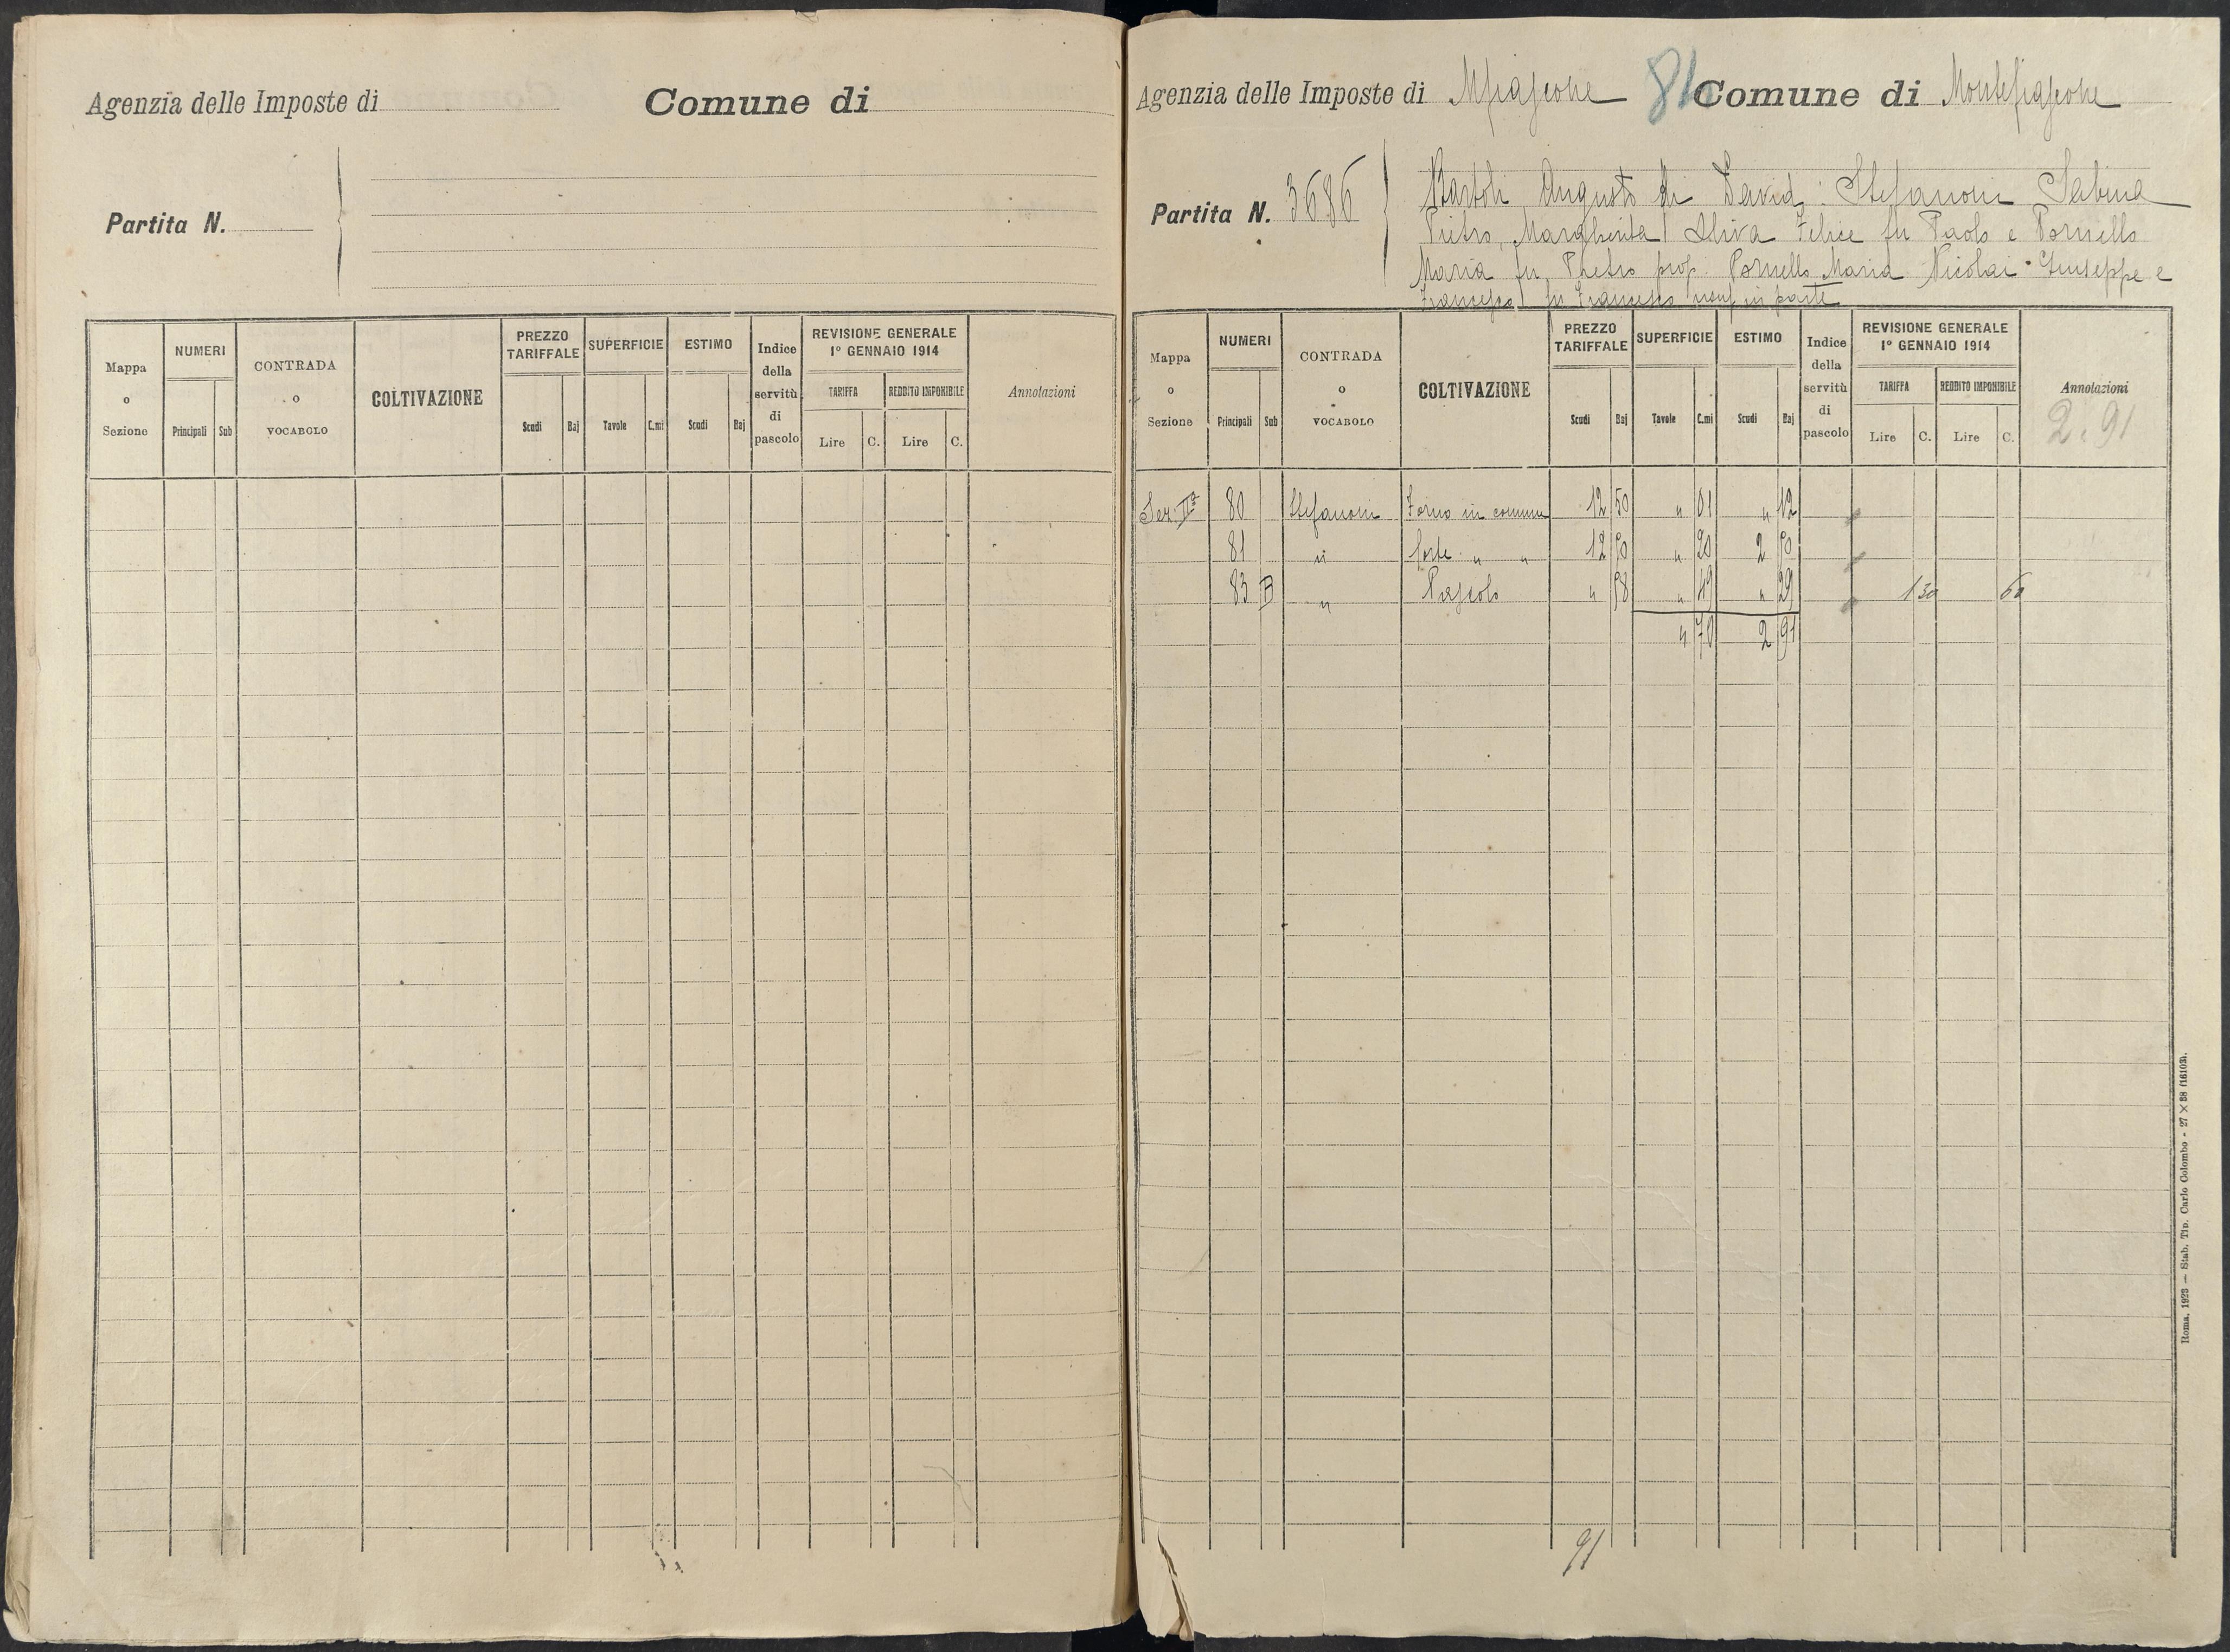 Agenzia delle Imposte di
Comune di
Partita N.
Mappa o Sezione
NUMERI
Principali
Sub
CONTRADA o VOCABOLO
COLTIVAZIONE
PREZZO TARIFFALE
Scudi
Baj
SUPERFICIE
Tavole
C.mi
ESTIMO
Scudi
Baj
Indice della servitù di pascolo
REVISIONE GENERALE
1° GENNAIO 1914
TARIFFA
Lire
C.
REDDITO IMPONIBILE
Lire
C.
Annotazioni
Agenzia delle Imposte di Mfiascone
81
Comune di Montefiascone
Partita N. 3686
Bartoli Augusto di David: Stefanoni Sabina
Pietro, Margherita Felice fu Paolo e
Maria fu Pietro prop. Maria Nicolai Giuseppe e
Francesco fu Francesco usuf in parte
Mappa o Sezione
NUMERI
Principali
Sub
CONTRADA o VOCABOLO
COLTIVAZIONE
PREZZO TARIFFALE
Scudi
Baj
SUPERFICIE
Tavole
C.mi
ESTIMO
Scudi
Baj
Indice della servitù di pascolo
REVISIONE GENERALE
1° GENNAIO 1914
TARIFFA
Lire
C.
REDDITO IMPONIBILE
Lire
C.
Annotazioni
2.91
Sez. IIa 80 Stefanoni Forno in comune 12 50 " 01 " 12
81 " Corte " " 12 50 " 20 2 50
83 " Pascolo " 58 " 49 " 29 1 30 60
" 70 2 91
91
Roma, 1923 — Stab. Tip. Carlo Colombo - 27 × 38 (16103).